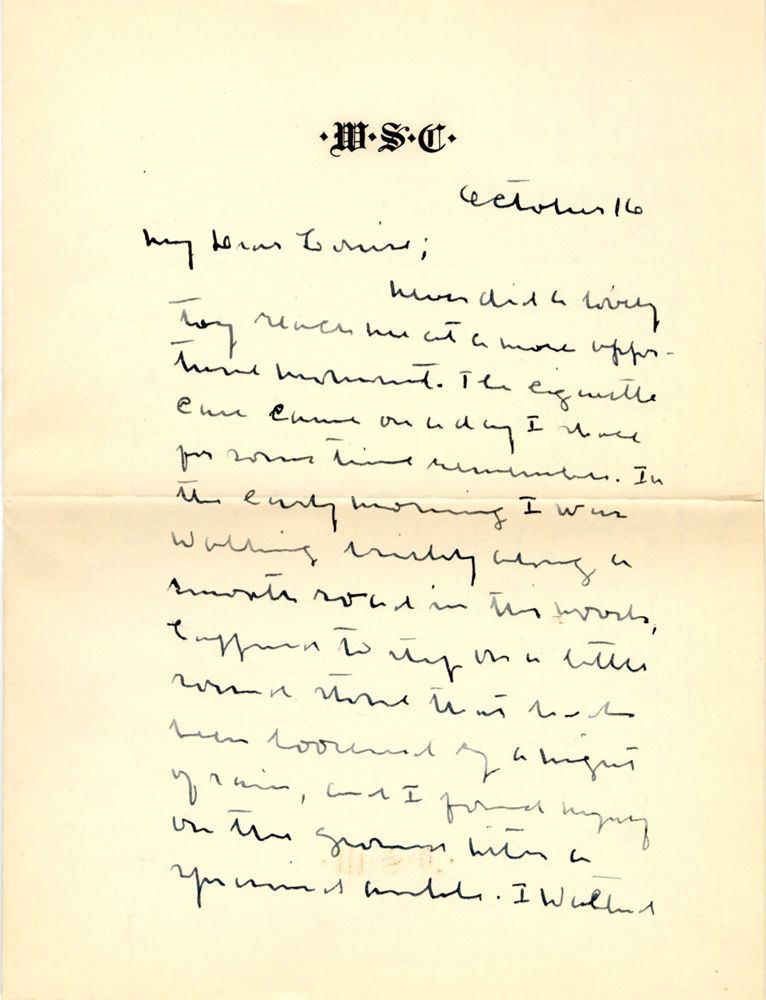 ·W·S·C·
October 16
My Dear Louise;
Never did a lovely
toy reach me at a more oppor-
tune moment. The cigarette
case came on a day I shall
for some time remember. In
the early morning I was
walking briskly along a
smooth road in the woods,
happened to step on a little
round stone that had
been loosened by a night
of rain, and I found myself
on the ground with a
sprained ankle. I walked